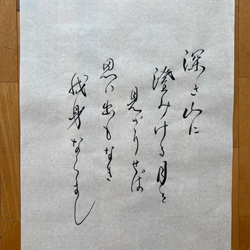 深き山に
澄みける月を
見ざりせば
思ひ出もなき
我身ならまし